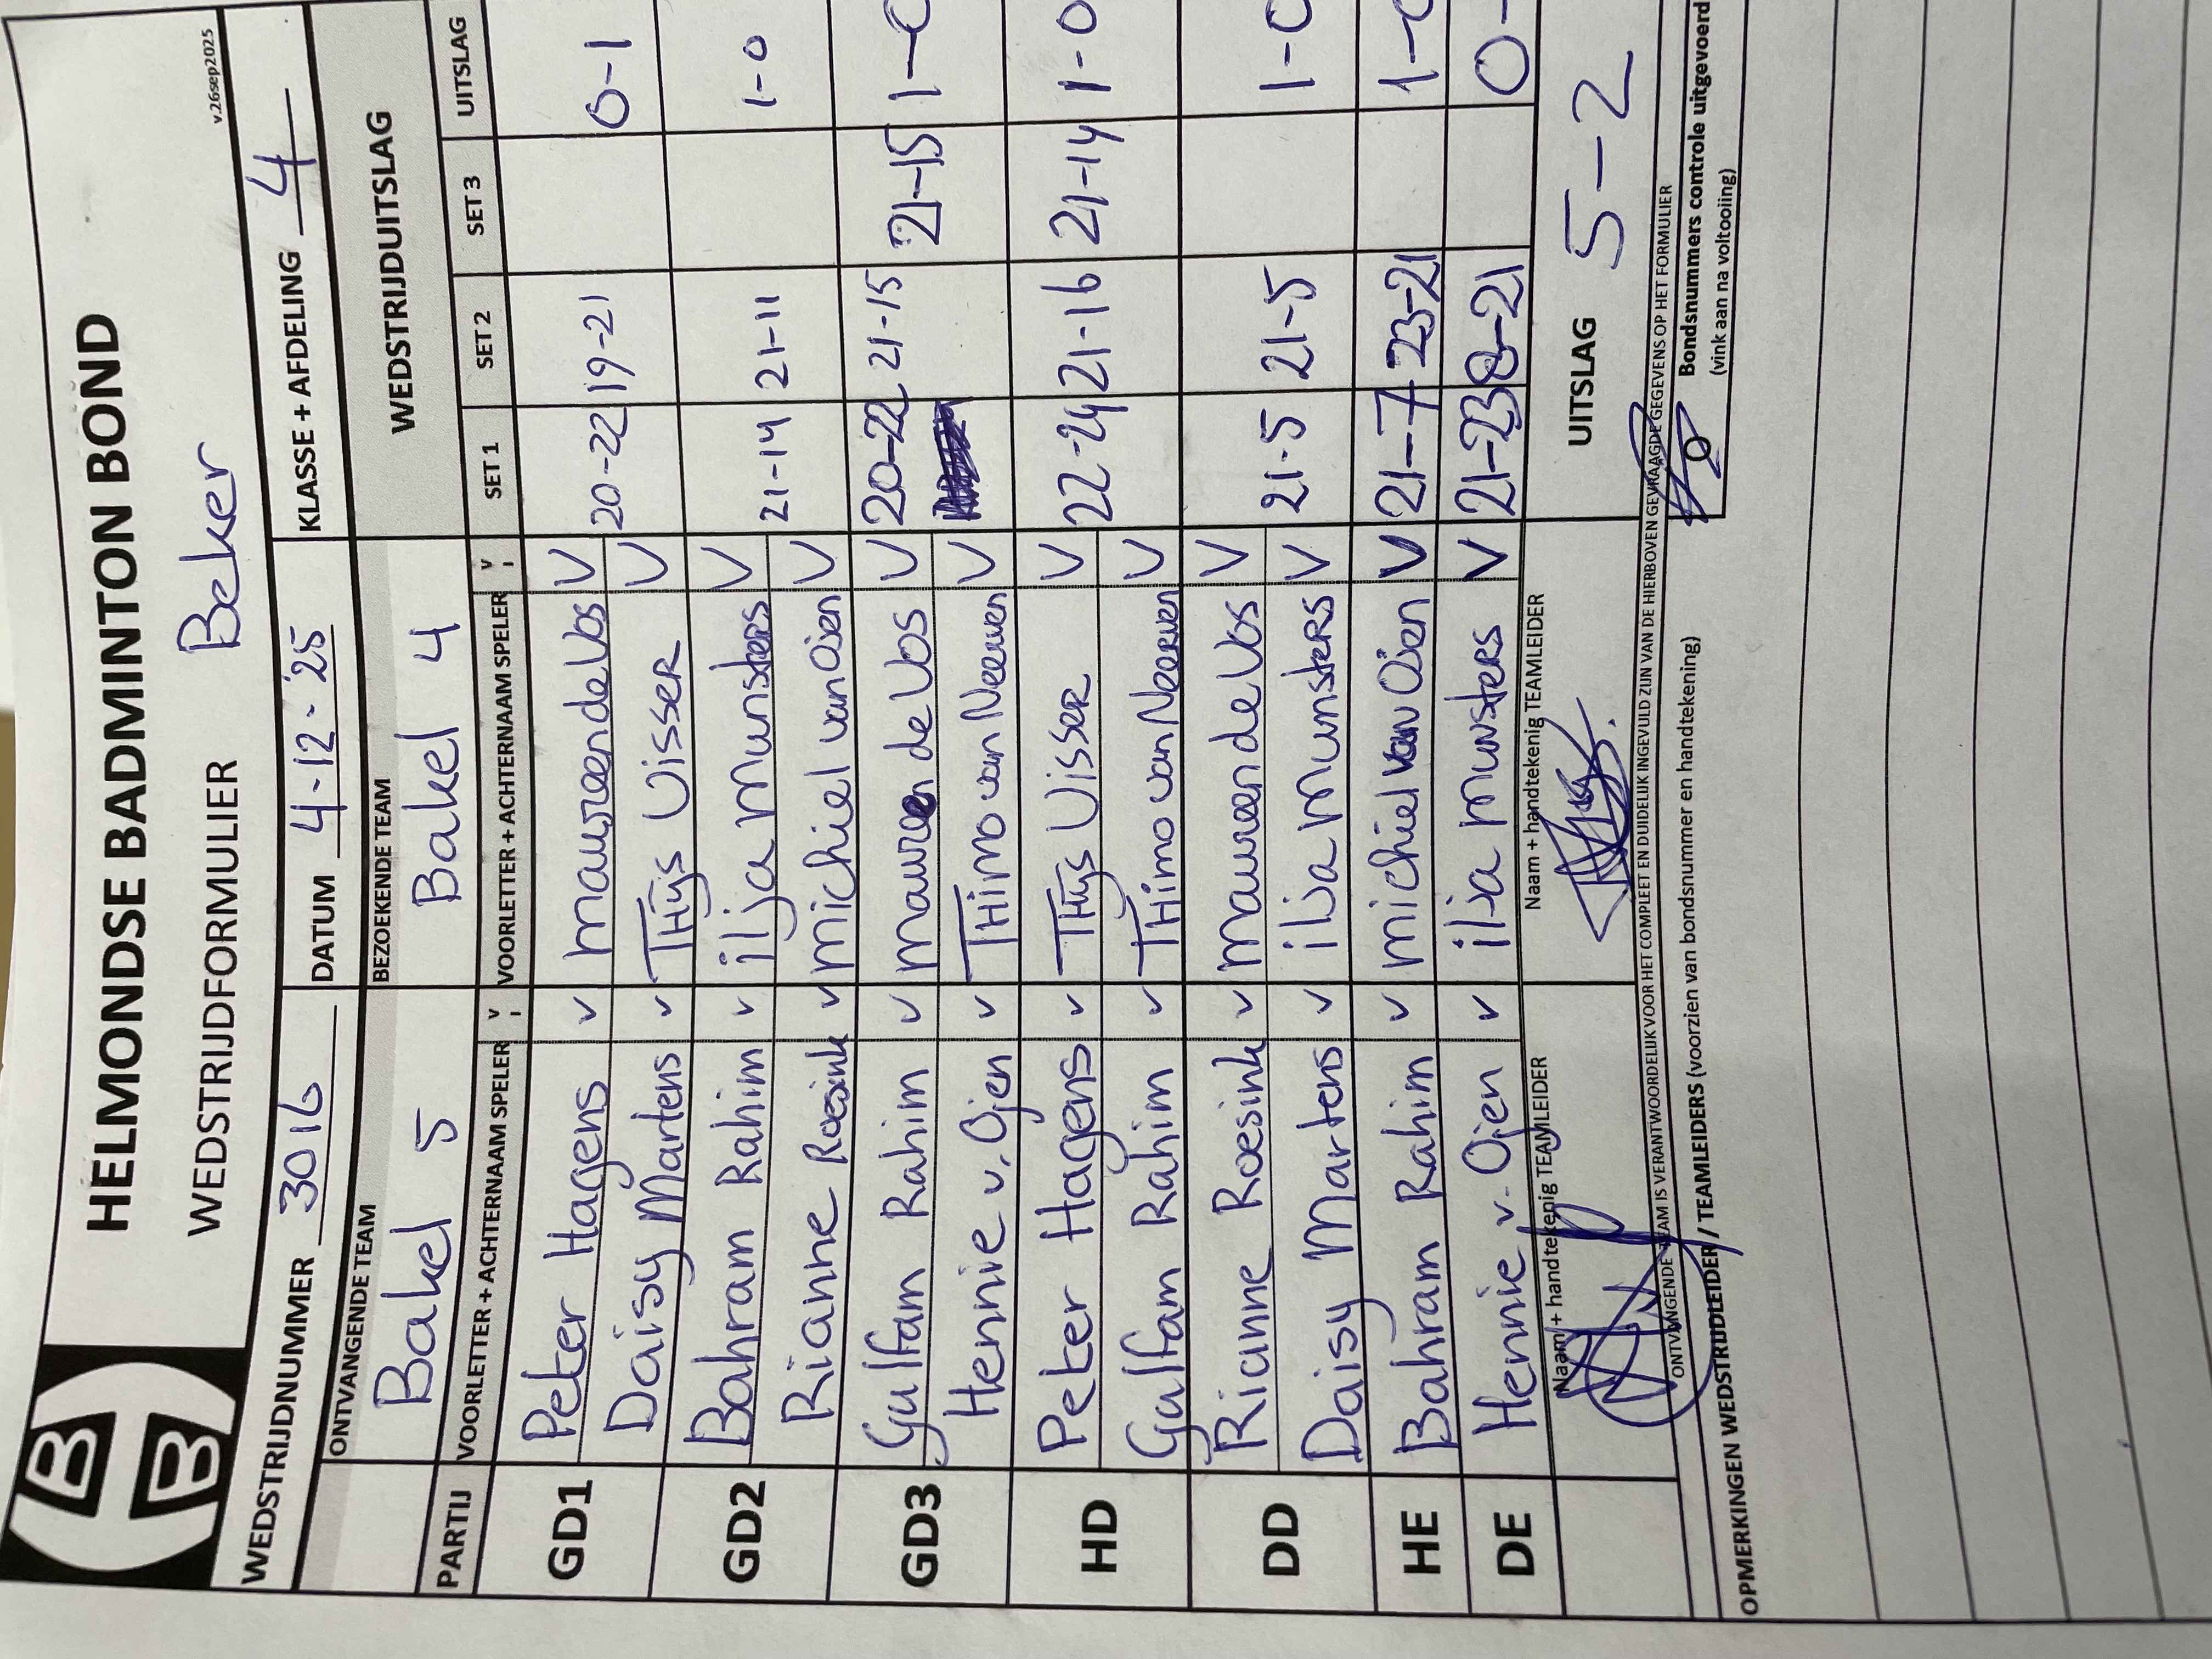 HELMONDSE BADMINTON BOND
WEDSTRIJDFORMULIER Beker
v.26sep2025
WEDSTRIJDNUMMER 3016 DATUM 4-12-'25 KLASSE + AFDELING 4
ONTVANGENDE TEAM BEZOEKENDE TEAM WEDSTRIJDUITSLAG
Bakel 5 Bakel 4
PARTIJ VOORLETTER + ACHTERNAAM SPELER V VOORLETTER + ACHTERNAAM SPELER V SET 1 SET 2 SET 3 UITSLAG
GD1 Peter Hagens v maureen de Vos V 20-22 19-21 0-1
Daisy Martens v THijs Visser V
GD2 Bahram Rahim v ilja munsters V 21-14 21-11 1-0
Rianne Roesink v michiel van Oijen V
GD3 Gulfam Rahim v maureen de Vos V 20-22 21-15 21-15 1-0
Hennie v. Ojen v THimo van Neerven V
HD Peter Hagens v THijs Visser V 22-24 21-16 21-14 1-0
Gulfam Rahim v THimo van Neerven V
DD Rianne Roesink v maureen de Vos V 21-5 21-5 1-0
Daisy Martens v ilja munsters V
HE Bahram Rahim v michiel van Oijen V 21-7 23-21 1-0
DE Hennie v. Ojen v ilja munsters V 21-23 8-21 0-
Naam + handtekenig TEAMLEIDER Naam + handtekenig TEAMLEIDER UITSLAG 5-2
ONTVANGENDE TEAM IS VERANTWOORDELIJK VOOR HET COMPLEET EN DUIDELIJK INGEVULD ZIJN VAN DE HIERBOVEN GEVRAAGDE GEGEVENS OP HET FORMULIER
OPMERKINGEN WEDSTRIJDLEIDER / TEAMLEIDERS (voorzien van bondsnummer en handtekening)
Bondsnummers controle uitgevoerd
(vink aan na voltooiing)